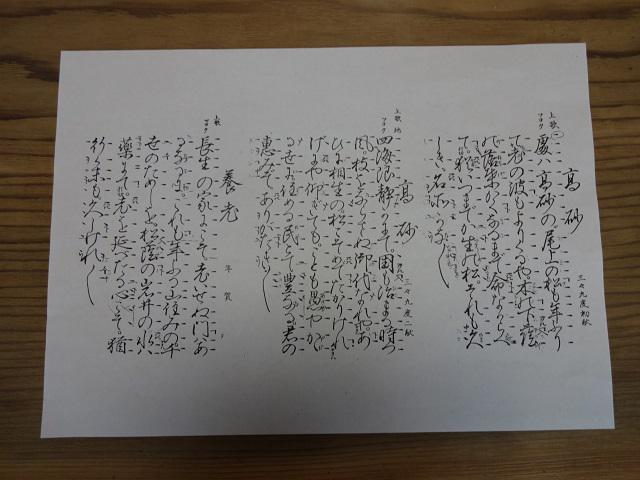 高砂 三々九度初献
上歌
所ハ高砂の尾上の松も年ふり
て老の波もよりくるや木の下蔭
の落葉かくなるまで命ながらへ
て猶いつまでか生の松それも久
しき名所かな
高砂 三々九度二献
上歌 地
四海波静かにて国も治まる時つ
風枝をならさぬ御代なれやあ
ひに相生の松こそめでたかりけれ
げにや仰ぎてもことも愚やかゝ
る世に住める民とて豊かなる君の
恵みぞありがたき
養老 年賀
長生の家にこそ老せぬ門ハあ
るなるにこれも年ふる山住みの千
世のためしを松蔭の岩井の水ハ
薬にて老を延べたる心こそ猶
行く末も久しけれ